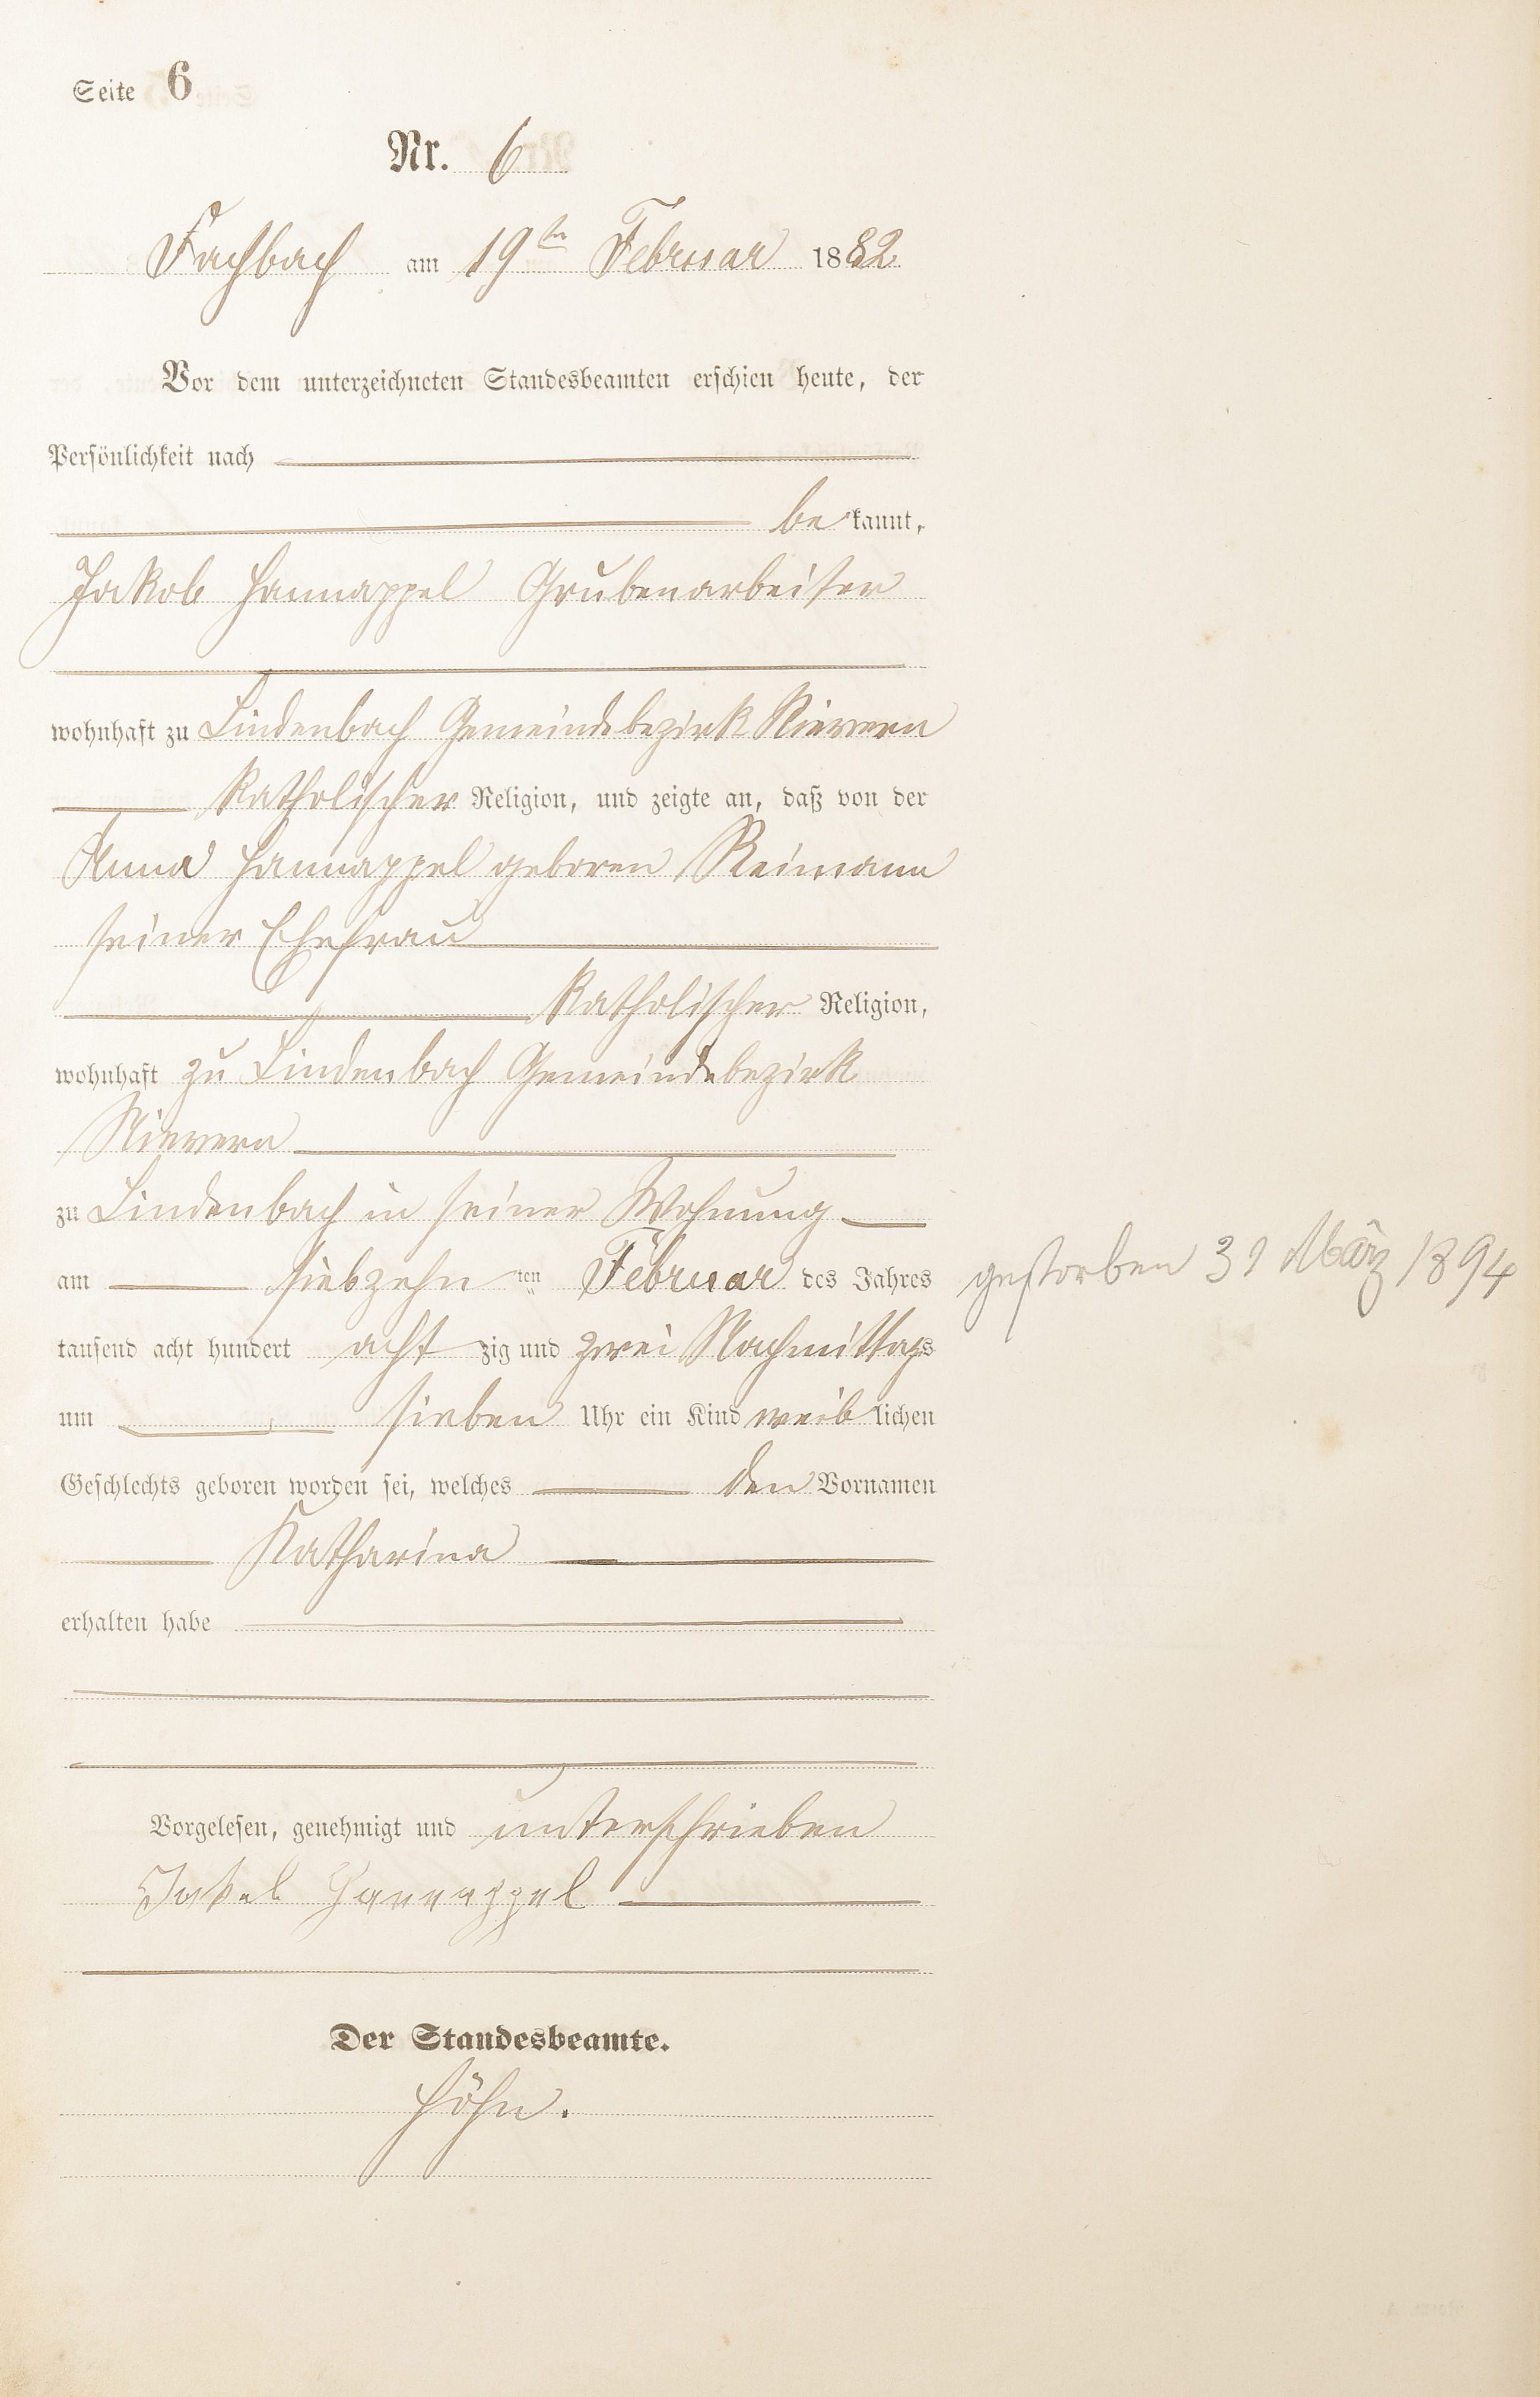 Seite 6
Nr. 6
Fachbach am 19ten Februar 1882
Vor dem unterzeichneten Standesbeamten erschien heute, der
Persönlichkeit nach
be kannt,
Jakob Hannappel Grubenarbeiter
wohnhaft zu Lindenbach Gemeindebezirk Nievern
katholischer Religion, und zeigte an, daß von der
Anna Hannappel geboren Reimann
seiner Ehefrau
katholischer Religion,
wohnhaft zu Lindenbach Gemeindebezirk
Nievern
zu Lindenbach in seiner Wohnung
am siebzehn ten Februar des Jahres
gestorben 31 März 1894
tausend acht hundert acht zig und zwei Nachmittags
um sieben Uhr ein Kind weib lichen
Geschlechts geboren worden sei, welches den Vornamen
Katharina
erhalten habe
Vorgelesen, genehmigt und unterschrieben
Jakob Hannappel
Der Standesbeamte.
Höhn.